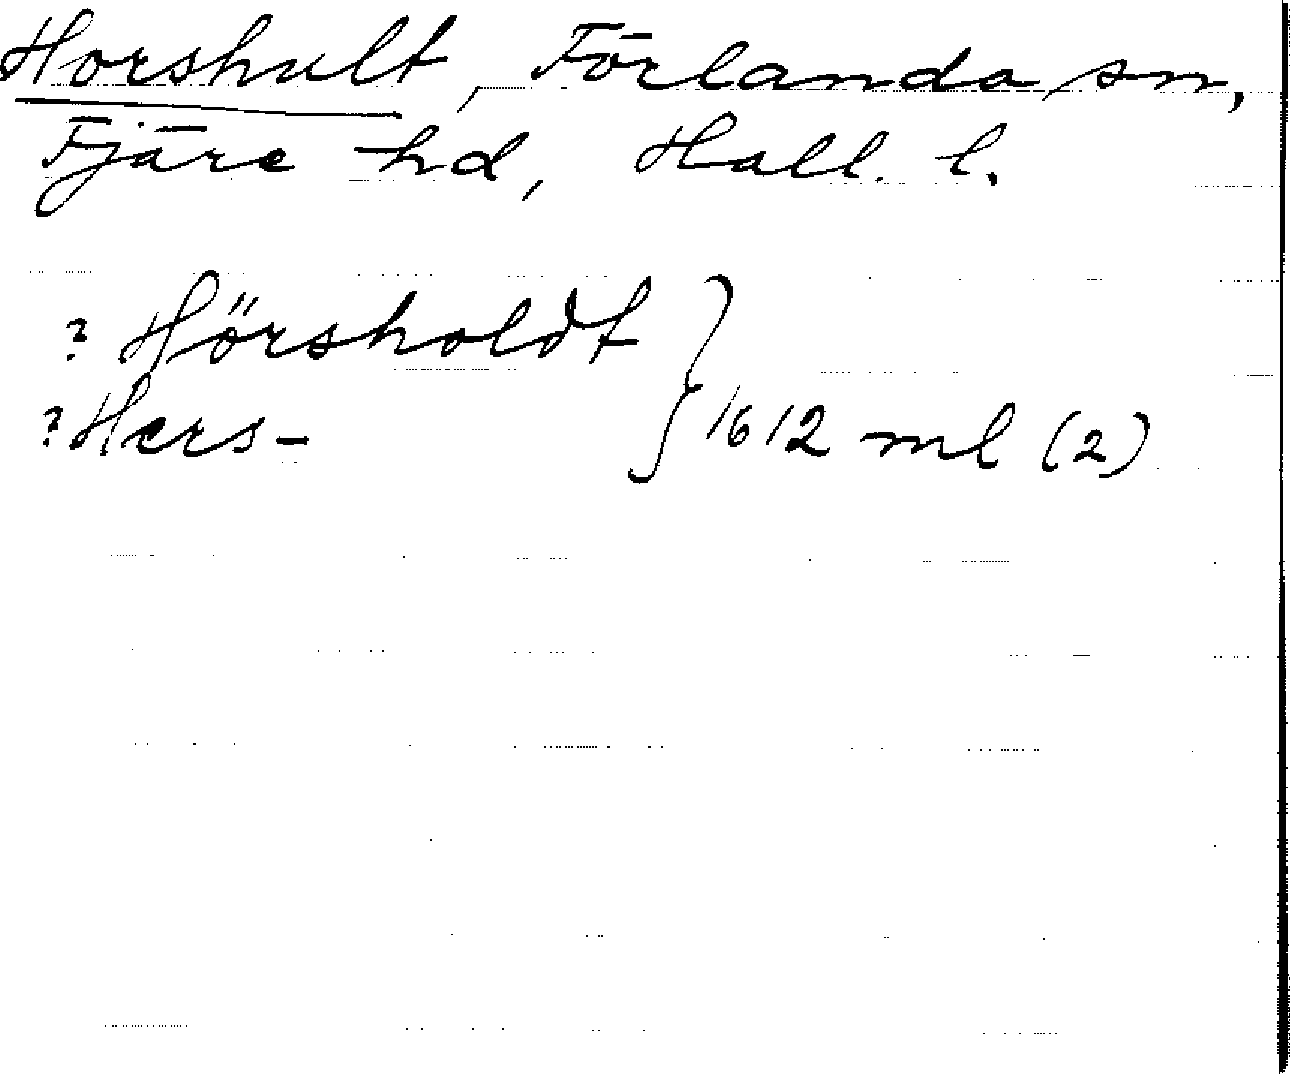 Horshult, Förlanda sn,
Fjäre hd, Hall. l.
? Hörsholdt
? Hers- } 1612 ml (2)